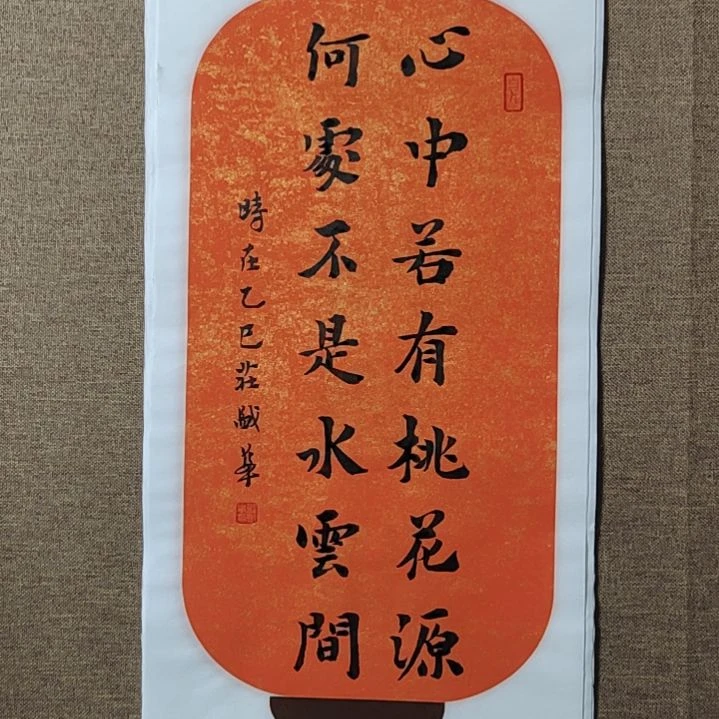 心中若有桃花源
何處不是水雲間
時在乙巳莊
華